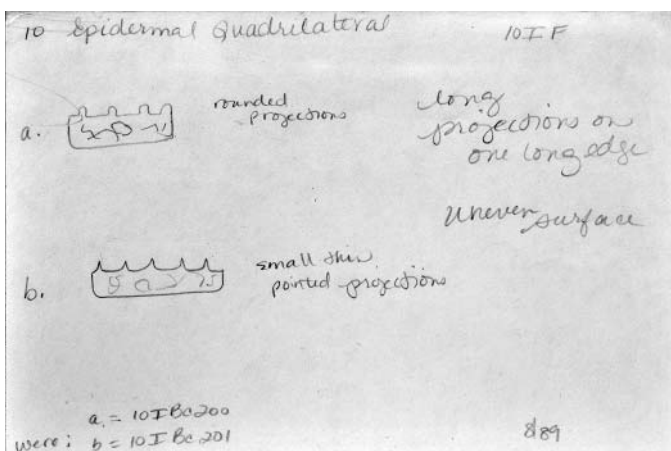 10 Epidermal Quadrilateral
10IF
a.
rounded
projections
long
projections on
one long edge
Uneven surface
b.
small thin
pointed projections
a = 10IBc200
were: b = 10IBc201
8/89